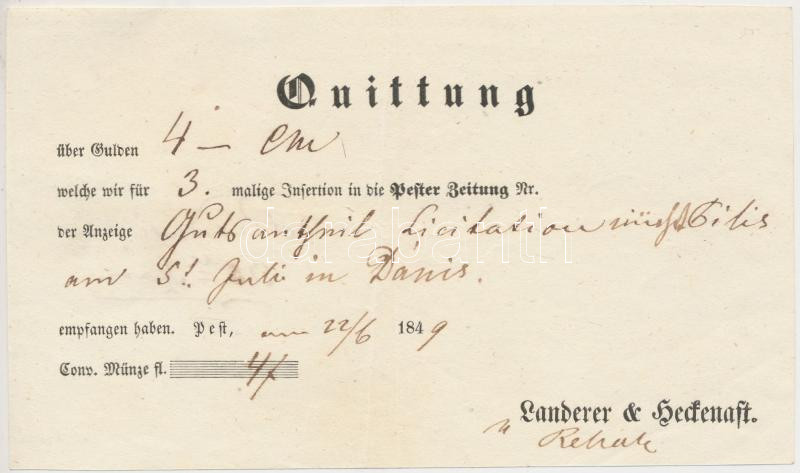 Quittung
über Gulden 4 — CM
welche wir für 3. malige Insertion in die Pester Zeitung Nr.
der Anzeige Gutsantheil Licitation nächst Pilis
am 5t Juli in Dánis.
empfangen haben. Pest, am 22/6 1849
Conv. Münze fl. 4f
Landerer & Heckenast.
darabanth